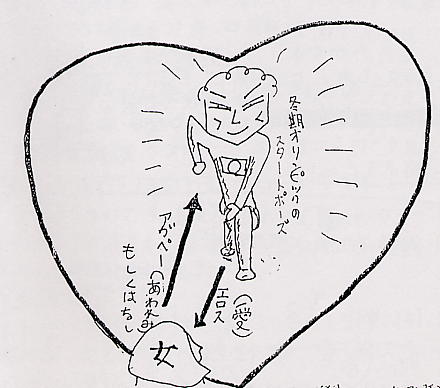 冬期オリンピックの
スタートポーズ
アガペー(あわれみ
もしくはなし)
エロス
(愛)
女